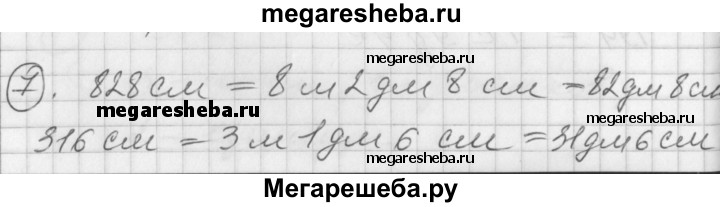 megaresheba.ru
megaresheba.ru
7. 828 см = 8 м 2 дм 8 см = 82 дм 8 см
megaresheba.ru
megaresheba.ru
316 см = 3 м 1 дм 6 см = 31 дм 6 см
megaresheba.ru
Мегарешеба.ру